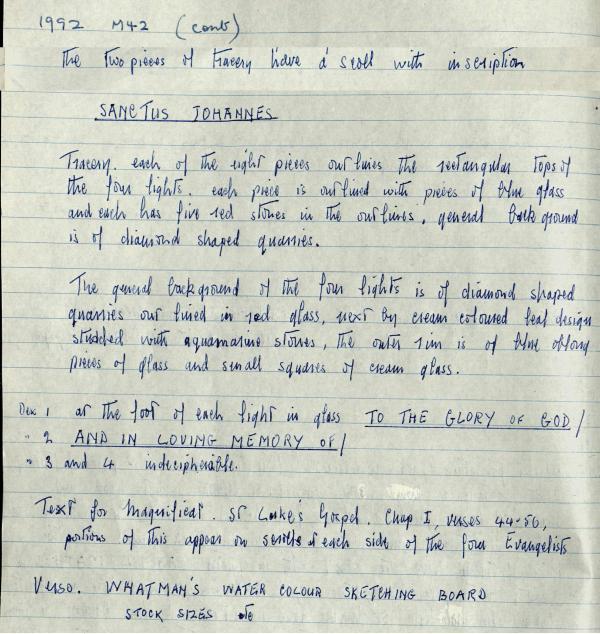 1992 M42 (cont)
The two pieces of tracery have a scroll with inscription
SANCTUS JOHANNES
Tracery. each of the eight pieces outlines the rectangular tops of
the four lights. each piece is outlined with pieces of blue glass
and each has five red stones in the outlines, general background
is of diamond shaped quarries.
The general background of the four lights is of diamond shaped
quarries outlined in red glass, next by cream coloured leaf design
studded with aquamarine stones, the outer rim is of blue oblong
pieces of glass and small squares of cream glass.
Dex. 1 at the foot of each light in glass TO THE GLORY OF GOD/
" 2 AND IN LOVING MEMORY OF/
" 3 and 4 indecipherable.
Text for Magnificat. St Luke's Gospel. Chap I, verses 44-50,
portions of this appear on scrolls at each side of the four Evangelists
Verso. WHATMAN'S WATER COLOUR SKETCHING BOARD
STOCK SIZES